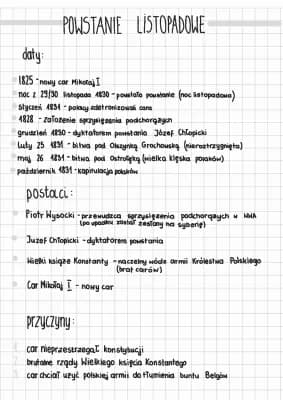 POWSTANIE LISTOPADOWE
daty:
1825 - nowy car Mikołaj I
noc z 29/30 listopada 1830 - powstało powstanie (noc listopadowa)
styczeń 1831 - polacy zdetronizowali cara
1828 - założenie sprzysiężenia podchorążych
grudzień 1830 - dyktatorem powstania Józef Chłopicki
luty 25 1831 - bitwa pod Olszynką Grochowską (nierozstrzygnięta)
maj 26 1831 - bitwa pod Ostrołęką (wielka klęska polaków)
październik 1831 - kapitulacja polaków
postaci:
Piotr Wysocki - przewodzca sprzysiężenia podchorążych w WWA
(po upadku został zesłany na syberię)
Józef Chłopicki - dyktatorem powstania
Wielki książe Konstanty - naczelny wódz armii Królestwa Polskiego
(brat carów)
Car Mikołaj I - nowy car
przyczyny:
1 car nieprzestrzegał konstytucji
2 brutalne rządy Wielkiego księcia Konstantego
3 car chciał użyć polskiej armii do tłumienia buntu Belgów